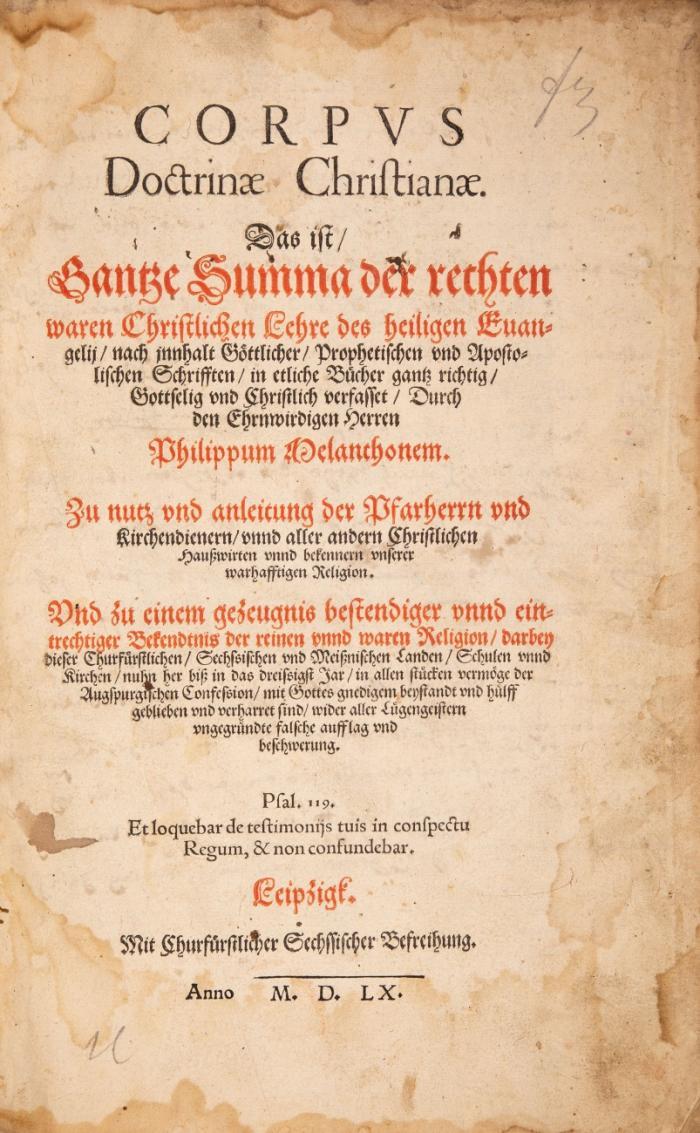 CORPVS
Doctrinæ Chriſtianæ.
Das iſt /
Gantze Summa der rechten
waren Chriſtlichen Lehre des heiligen Euan-
gelij / nach jnnhalt Göttlicher / Prophetiſchen vnd Apoſto-
liſchen Schrifften / in etliche Bücher gantz richtig /
Gottſelig vnd Chriſtlich verfaſſet / Durch
den Ehrnwirdigen Herren
Philippum Melanthonem.
Zu nutz vnd anleitung der Pfarherrn vnd
Kirchendienern / vnnd aller andern Chriſtlichen
Haußwirten vnnd bekennern vnſerer
warhafftigen Religion.
Vnd zu einem gezeugnis beſtendiger vnnd ein-
trechtiger Bekendtnis der reinen vnnd waren Religion / darbey
dieſer Churfürſtlichen / Sechſsiſchen vnd Meißniſchen Landen / Schulen vnnd
Kirchen / nuhn her biß in das dreiſsigſt Jar / in allen ſtücken vermöge der
Augſpurgiſchen Confeſsion / mit Gottes gnedigem beyſtandt vnd hülff
geblieben vnd verharret ſind / wider aller Lügengeiſtern
vngegründte falſche aufflag vnd
beſchwerung.
Pſal. 119.
Et loquebar de teſtimonijs tuis in conſpectu
Regum, & non confundebar.
Leipzigk.
Mit Churfürſtlicher Sechſſiſcher Befreihung.
Anno M. D. LX.